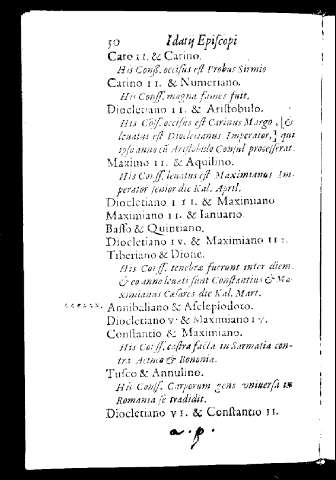 50 Idatij Episcopi
Caro II. & Carino.
His Conss. occisus est Probus Sirmio
Carino II. & Numeriano.
His Conss. magna fames fuit.
Diocletiano II. & Aristobulo.
His Coss. occisus est Carinus Margo, [&
levatus est Diocletianus Imperator,] qui
ipso anno cũ Aristobulo Consul processerat.
Maximo II. & Aquilino.
His Conss. levatus est Maximianus Im-
perator senior die Kal. April.
Diocletiano III. & Maximiano
Maximiano II. & Ianuario.
Basso & Quintiano.
Diocletiano IV. & Maximiano III.
Tiberiano & Dione.
His Conss. tenebræ fuerunt inter diem.
& eo anno levati sunt Constantius & Ma-
ximianus Cæsares die Kal. Mart.
Annibaliano & Asclepiodoto.
Diocletiano V. & Maximiano IV.
Constantio & Maximiano.
His Conss. castra facta in Sarmatia con-
tra Acinco & Bononia.
Tusco & Annulino.
His Conss. Carporum gens universa in
Romania se tradidit.
Diocletiano VI. & Constantio II.
a.p.